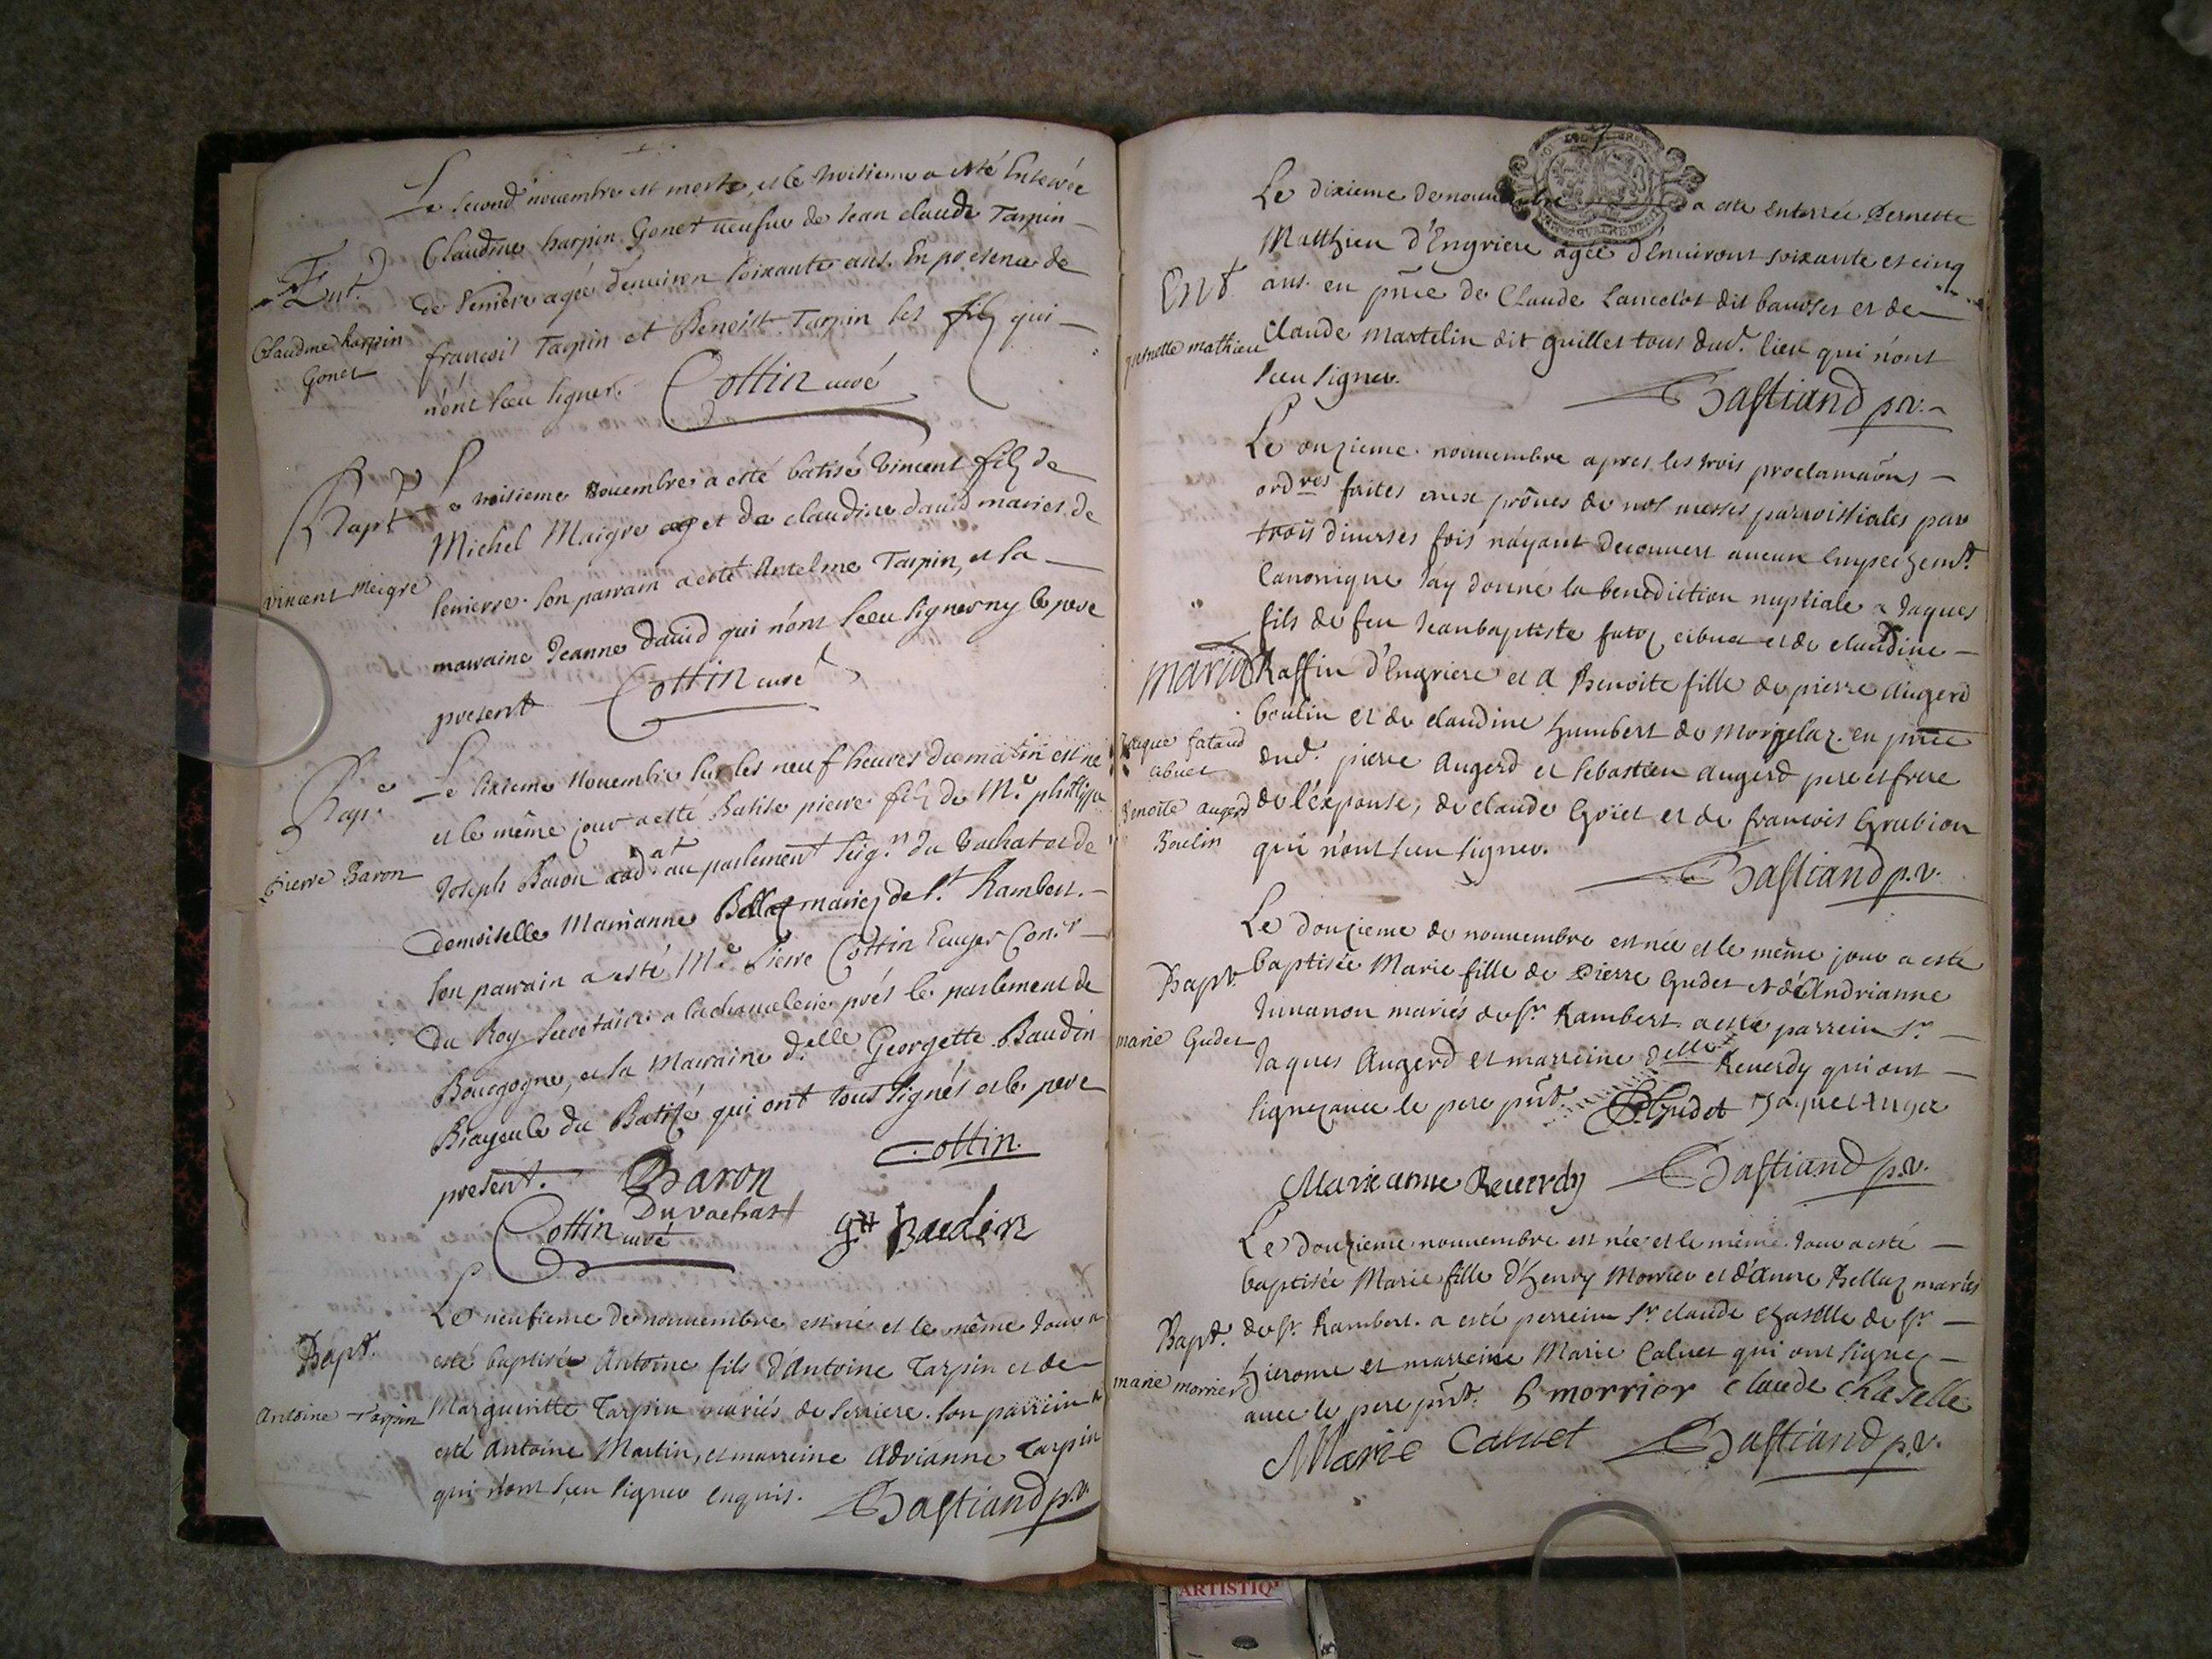 Le second novembre est morte, et le troisieme a esté Enterrée
Claudine harpin Gonet veufve de Jean claude Tarpin
de Serriere agée d'environ soixante ans. En presence de
françois Tarpin et Benoist Tarpin ses fils qui
n'ont sceu signer. Cottin curé
Ent.
Claudine harpin
Gonet
Le troisieme Novembre a esté batisé Vincent fils de
Michel Maigre et de claudine david mariés de
serrierre. son parrain a esté Antelme Tarpin, et sa
marraine Jeanne david qui n'ont sceu signer ny le pere
present Cottin curé
Bapt
vincent Meigre
Le sixieme Novembre sur les neuf heures du matin est né
et le même jour a esté Batisé pierre fils de Me philippe
Joseph Baron adat au parlement seigr du vachat et de
demoiselle Marianne Bellot mariez de St Rambert.
son parrain a esté Me Pierre Cottin Ecuyer Conr
du Roy secretaire a la chancelerie prés le parlement de
Bourgogne, et la Marraine delle Georgette Baudin
Biayeule du Batisé qui ont tous signés et le pere
present. Baron Cottin.
Du vachat
Cottin curé gtt Baudin
Bap.e
pierre Baron
Le neufieme de nouvembre est né et le même jour a
esté baptisée Antoine fils d'Antoine Tarpin et de
Margueritte Tarpin mariés de serriere. son parrein a
esté Antoine Martin, et marreine Adrianne Tarpin
qui n'ont sceu signer enquis. Bastiand p.v.
Bapt.
Antoine Tarpin
Le dixieme de nouvembre a este enterrée Pernette
Matthieu d'Engriere agée d'environt soixante et cinq
ans. en pnce de Claude Lancelot dit bavoset et de
Claude Martelin dit guillet tous dud. lieu qui n'ont
sceu signer.
Bastiand p.v.
Ent.
pernette mathieu
Le onzieme nouvembre apres les trois proclamaons
ordres faites aux prônes de nos messes parroissiales par
trois diverses fois n'ayant decouvert aucun empechemt.
Canonique j'ay donné la benediction nuptiale a Jaques
fils de feu Jean baptiste fatoz cibuet et de claudine
Raffin d'Engriere et a Benoite fille de pierre Augerd
boulin et de claudine humbert de Morgelaz. en pnce
dud. pierre Augerd et sebastien augerd pere et frere
de l'expouse, de claude Goiet et de francois Grubion
qui n'ont sceu signer.
Bastiand p.v.
mariag
Jaque fataud
cibuet
benoite augerd
Boulin
Le douzieme de nouvembre est née et le même jour a esté
baptisée Marie fille de Pierre Gudet et d'Andrianne
Junanon mariés de St Rambert. a esté parrein sr
Jaques Augerd et marreine delle Reverdy qui ont
signez avec le pere pnt. P Gudet Jaque Auger
Marie anne Reverdy Bastiand p.v.
Bapt.
marie Gudet
Le douzieme nouvembre est née et le même jour a esté
baptisée Marie fille d'henry Morrier et d'Anne Bellaz mariés
de St Rambert. a esté perrein sr claude chaselle de St
hierome et marreine Marie Calvet qui ont signez
avec le pere pnt. h morrier claude chaselle
Marie Calvet Bastiand p.v.
Bapt.
marie morrier
ARTISTIQ